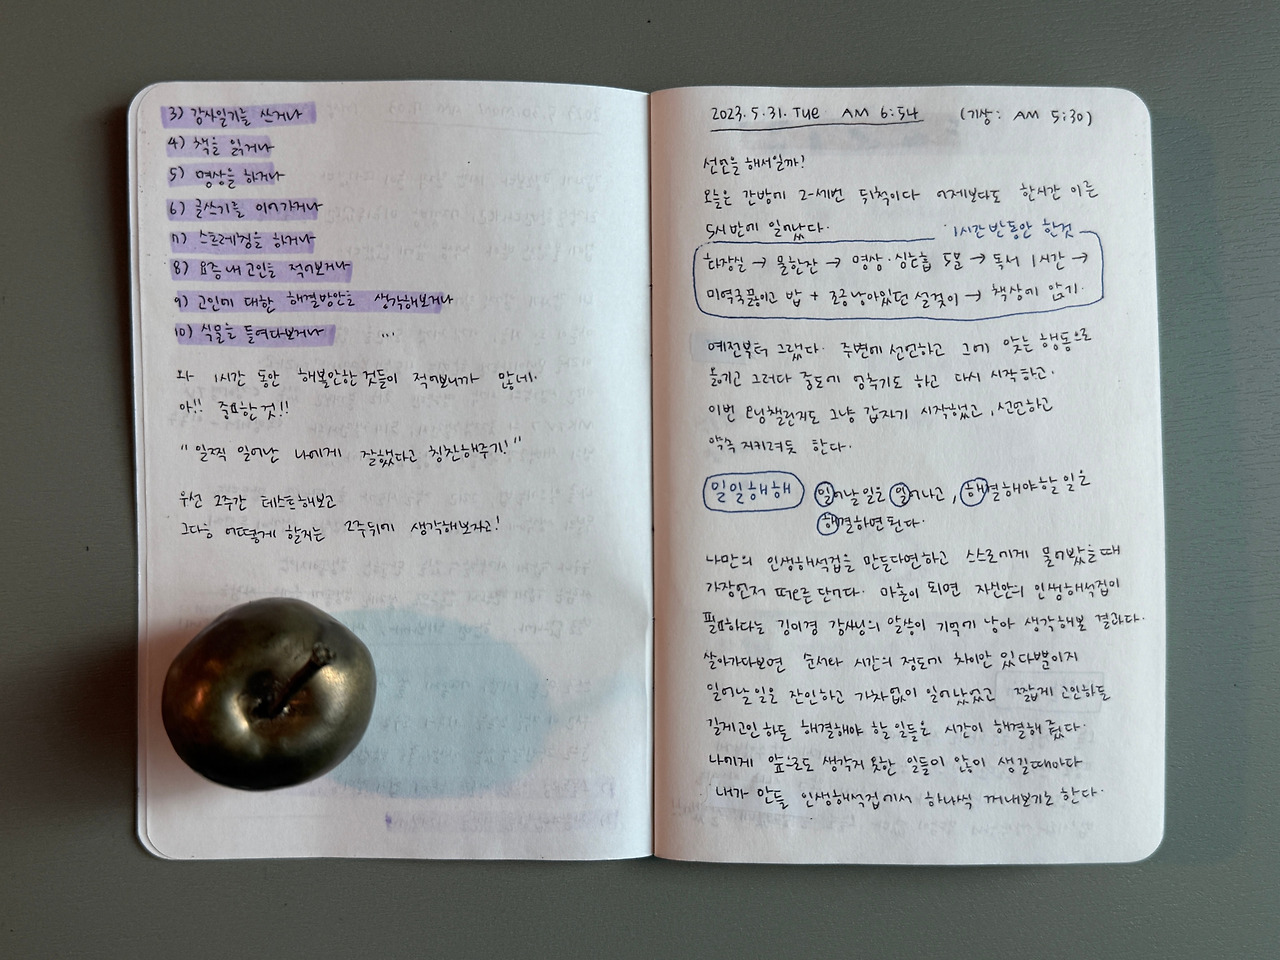 3) 감사일기를 쓰거나
4) 책을 읽거나
5) 명상을 하거나
6) 글쓰기를 이어가거나
7) 스트레칭을 하거나
8) 요즘 내 고민을 적어보거나
9) 고민에 대한 해결방안을 생각해보거나
10) 식물을 들여다보거나 ...
와 1시간 동안 해볼만한 것들이 적어보니까 많네.
아!! 중요한 것!!
" 일찍 일어난 나에게 잘했다고 칭찬해주기! "
우선 2주간 테스트해보고
그다음 어떻게 할지는 2주뒤에 생각해보자고!
2023. 5. 31. Tue AM 6:54 (기상: AM 5:30)
선언을 해서일까!
오늘은 간밤에 2-세번 뒤척이다 어제보다도 한시간 이른
5시반에 일어났다.
1시간 반동안 한것
화장실 → 물한잔 → 명상·심호흡 5분 → 독서 1시간 →
미역국끓이고 밥 + 조금 남아있던 설겆이 → 책상에 앉기.
예전부터 그랬다. 주변에 선언하고 그에 맞는 행동으로
옮기고 그러다 중도에 멈추기도 하고 다시 시작하고.
이번 모닝챌린지도 그냥 갑자기 시작했고, 선언하고
약속 지키려듯 한다.
일일해해 일어날 일은 일어나고, 해결해야할 일은
해결하면 된다.
나만의 인생해석집을 만든다면하고 스스로에게 물어봤을때
가장먼저 떠오른 단어다. 마흔이 되면 자신만의 인생해석집이
필요하다는 김미경 강사님의 말씀이 기억에 남아 생각해본 결과다.
살아가다보면 순서와 시간의 정도의 차이만 있다뿐이지
일어날 일은 잔인하고 가차없이 일어났었고 짧게 고민하든
길게고민하든 해결해야 할 일들은 시간이 해결해 줬다.
나에게 앞으로도 생각지 못한 일들이 많이 생길때마다
내가 만든 인생해석집에서 하나씩 꺼내보기로 한다.